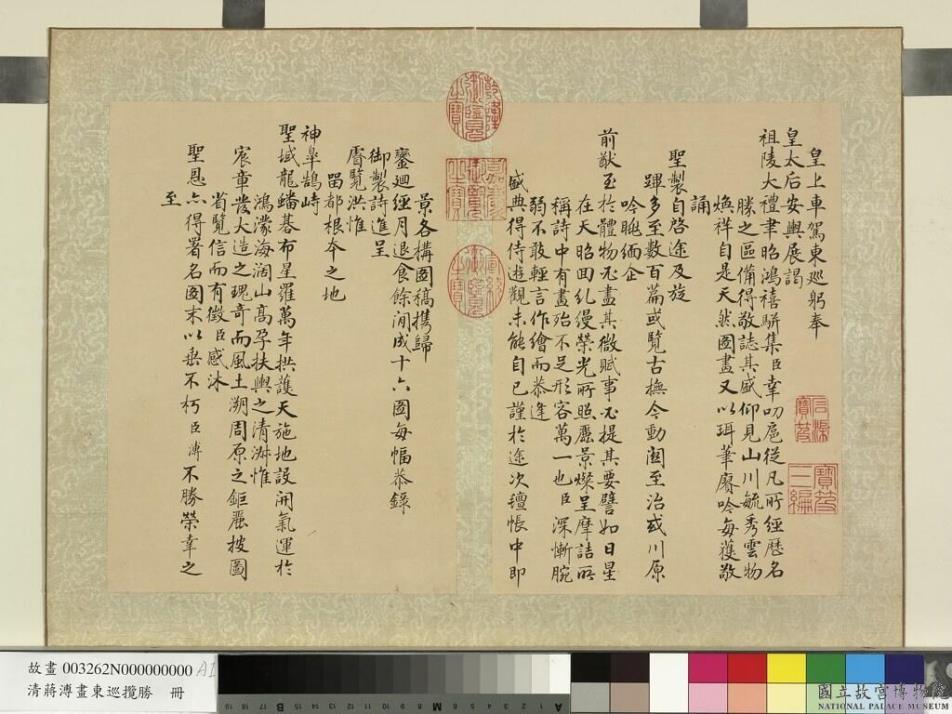 皇上車駕東巡躬奉
皇太后安輿展謁
祖陵大禮聿昭鴻禧駢集臣幸叨扈從凡所經歷名
勝之區備得敬誌其盛仰見山川毓秀雲物
煥祥自是天然圖畫又以珥華賡吟每獲敬
誦
聖製自啓途及旋
蹕多至數百篇或覽古撫今動關至治或川原
吟眺緬企
前猷至於體物必盡其微賦事必提其要譬如日星
在天昭回糺縵榮光所照麗景燦呈摩詰所
稱詩中有畫殆不足形容萬一也臣深慚腕
弱不敢輕言作繪而恭逢
盛典得侍遊觀未能自已謹於途次氊帳中即
石渠寶笈
寶笈三編
乾隆御覽之寶
嘉慶御覽之寶
宣統御覽之寶
景各構圖稿携歸
鑾廻經月退食餘閒成十六圖每幅恭錄
御製詩進呈
睿覽洪惟
留都根本之地
神臯鵠峙
聖域龍蟠碁布星羅萬年拱護天施地設開氣運於
鴻濛海濶山高孕扶輿之清淑惟
宸章發大造之瑰奇而風土溯周原之鉅麗披圖
省覽信而有徵臣感沐
聖恩亦得署名圖末以垂不朽臣溥不勝榮幸之
至
故畫 003262N000000000 A1
清蔣溥畫東巡攬勝 冊
國立故宮博物院
NATIONAL PALACE MUSEUM